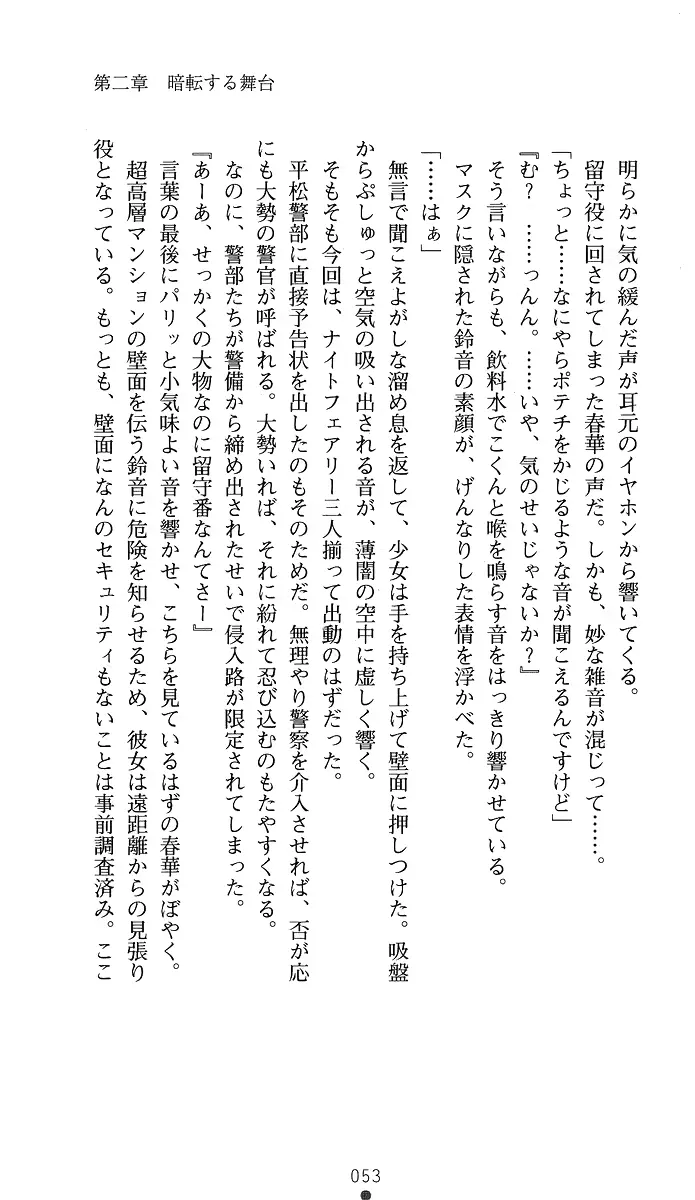 第二章　暗転する舞台
明らかに気の緩んだ声が耳元のイヤホンから響いてくる。
留守役に回されてしまった春華の声だ。しかも、妙な雑音が混じって……。
「ちょっと……なにやらポテチをかじるような音が聞こえるんですけど」
『む？　……っんん。……いや、気のせいじゃないか？』
そう言いながらも、飲料水でこくんと喉を鳴らす音をはっきり響かせている。
マスクに隠された鈴音の素顔が、げんなりした表情を浮かべた。
「……はぁ」
無言で聞こえよがしな溜め息を返して、少女は手を持ち上げて壁面に押しつけた。吸盤
からぷしゅっと空気の吸い出される音が、薄闇の空中に虚しく響く。
そもそも今回は、ナイトフェアリー三人揃って出動のはずだった。
平松警部に直接予告状を出したのもそのためだ。無理やり警察を介入させれば、否が応
にも大勢の警官が呼ばれる。大勢いれば、それに紛れて忍び込むのもたやすくなる。
なのに、警部たちが警備から締め出されたせいで侵入路が限定されてしまった。
『あーあ、せっかくの大物なのに留守番なんてさー』
言葉の最後にパリッと小気味よい音を響かせ、こちらを見ているはずの春華がぼやく。
超高層マンションの壁面を伝う鈴音に危険を知らせるため、彼女は遠距離からの見張り
役となっている。もっとも、壁面になんのセキュリティもないことは事前調査済み。ここ
053